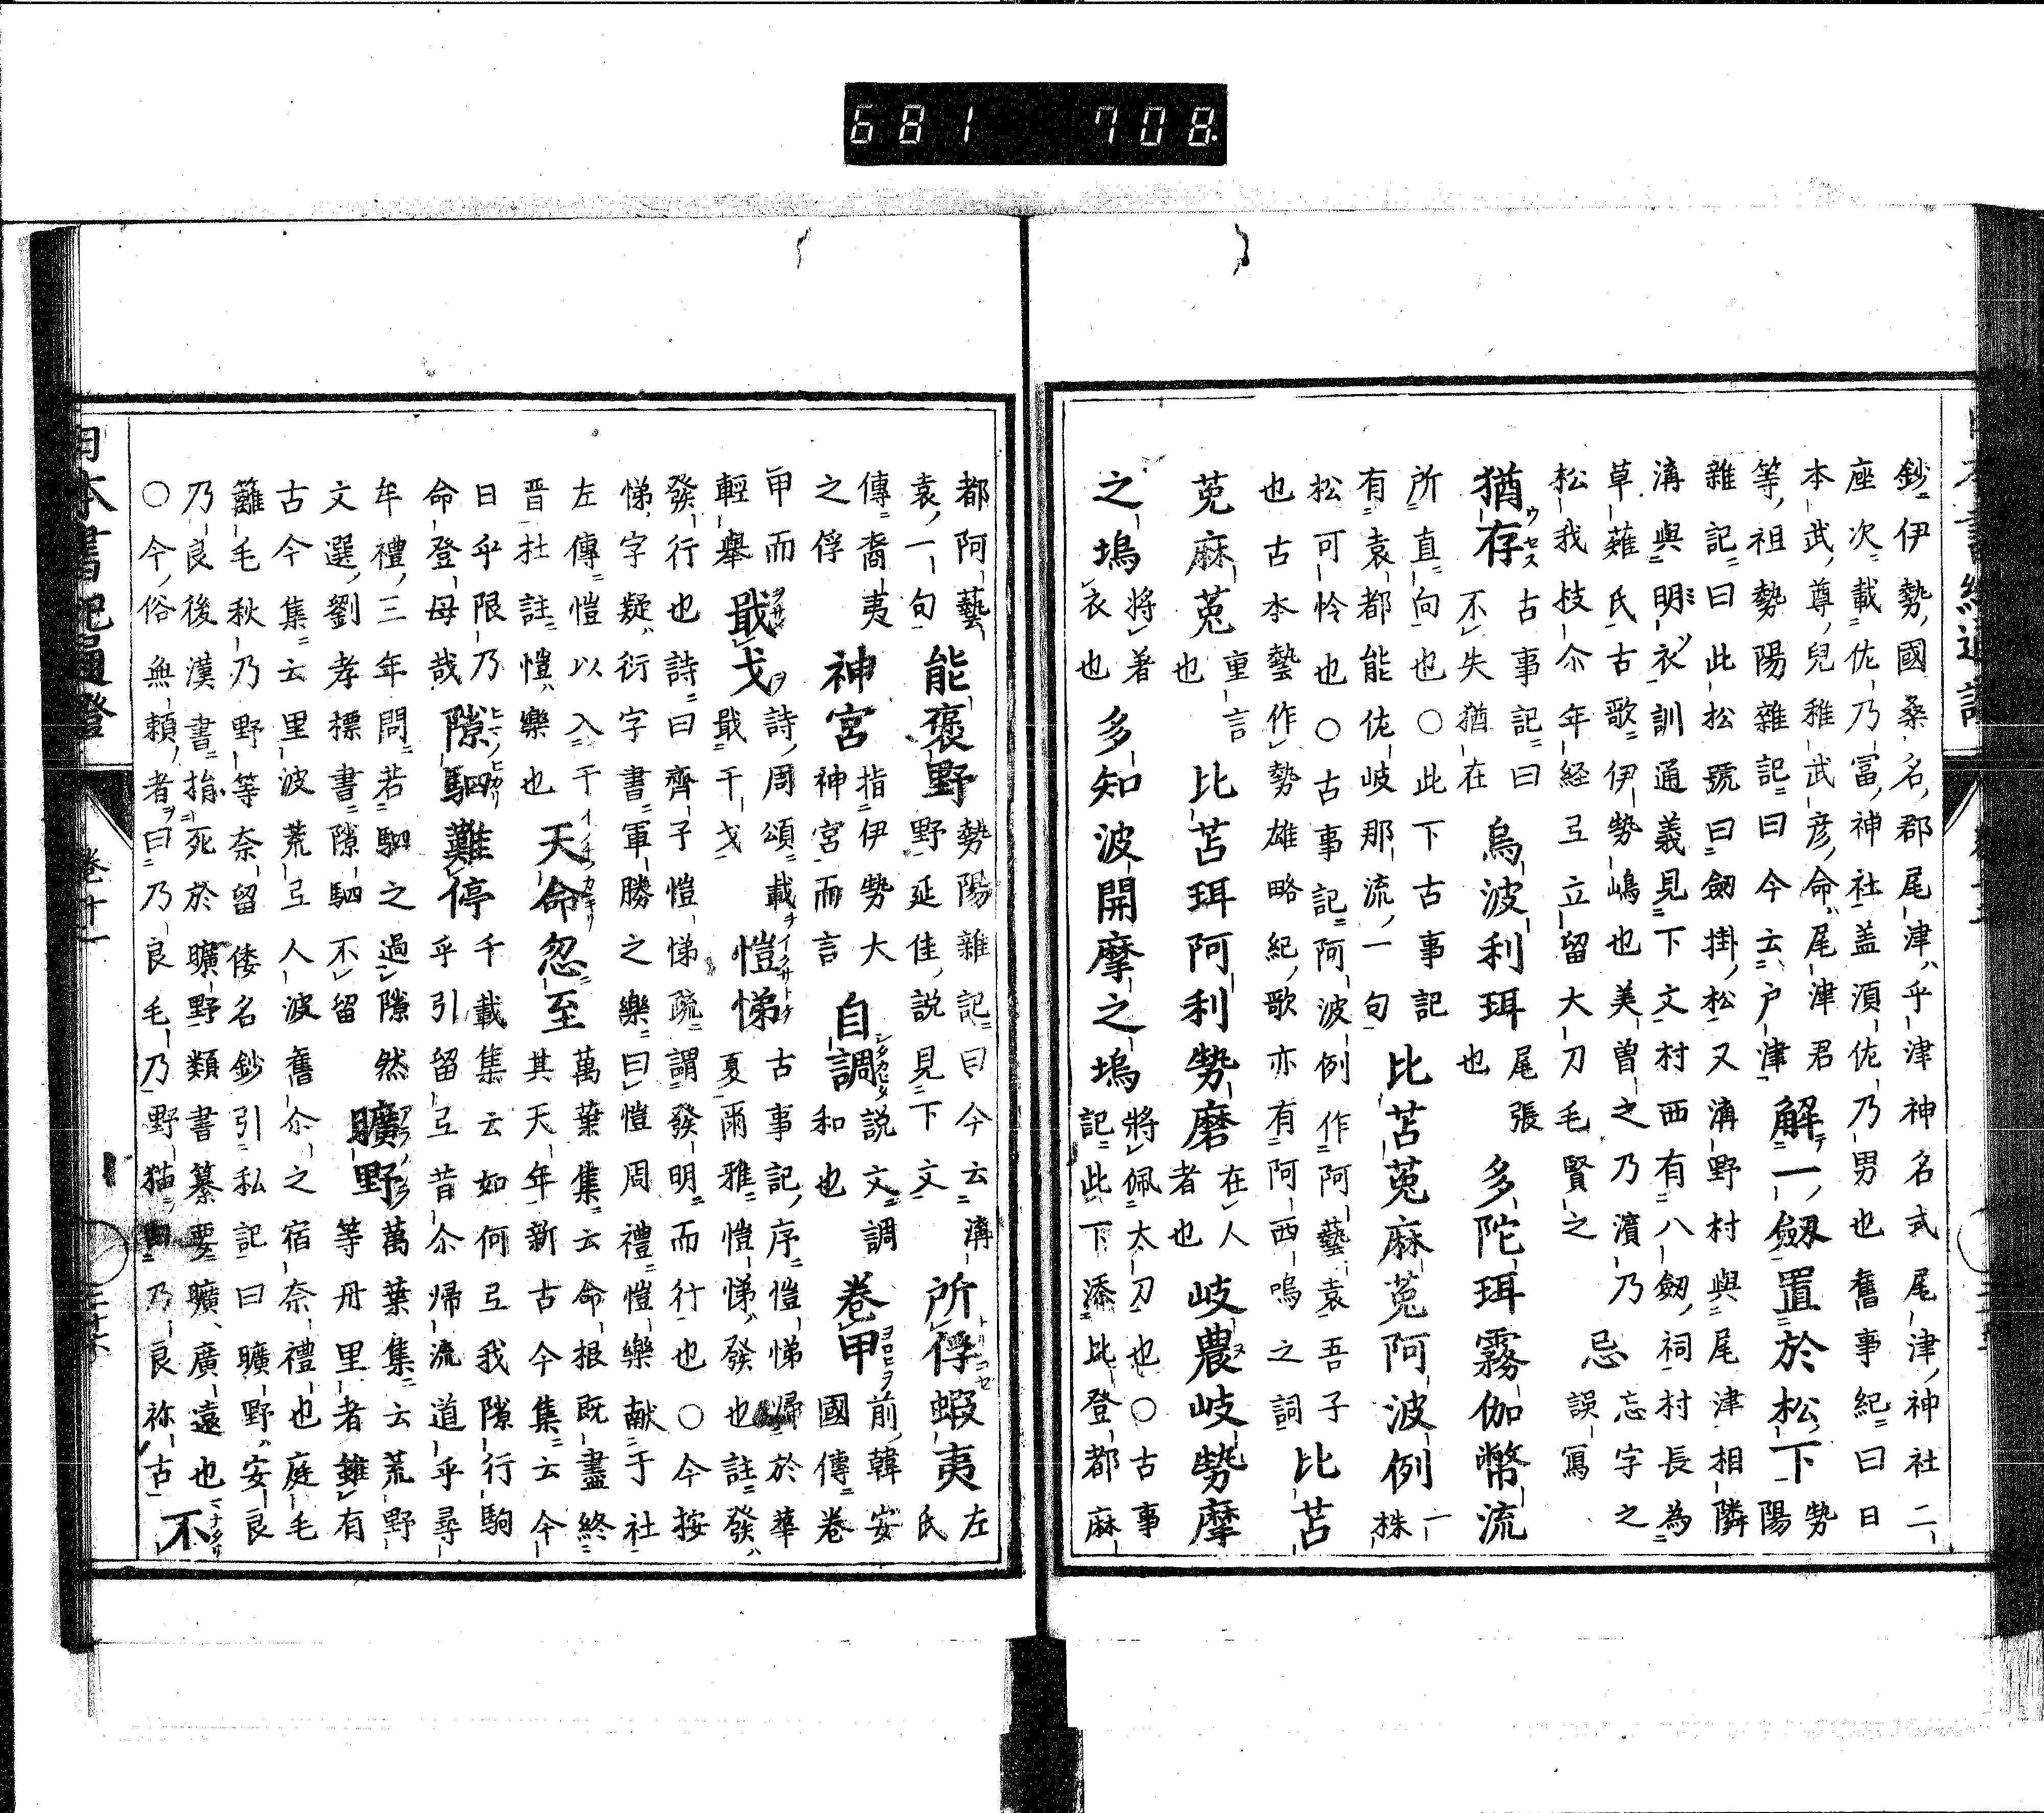 681 708
鈔伊勢國桑名郡尾津乎津神名式尾津神社二
座次載佐乃冨神社盖湏佐乃男也舊事紀曰日
本武尊兒稚武彦命尾津君
等祖勢陽雜記曰今云戸津
解一劔置於松下
勢陽
雜記曰此松號曰劔掛松又溝野村與尾津相隣
溝與明衣訓通義見下文村西有八劔祠村長為
草薙氏古歌伊勢嶋也美曽之乃濱乃
松我技尒年経弖立留大刀毛賢之
忌
忘字之
誤寫
猶存
ウセス
古事記曰
不失猶在
烏波利珥
尾張
也
多陀珥霧伽幣流
所直向也○此下古事記
有袁都能佐岐那流一句
比苫菟麻菟阿波例
一
株
松可怜也○古事記阿波例作阿藝袁吾子
也古本藝作勢雄略紀歌亦有阿西嗚之詞
比苫
菟麻菟
重言
也
比苫珥阿利勢磨
在人
者也
岐農岐勢摩
之塢
將著
衣也
多知波開摩之塢
將佩太刀也○古事
記此下添比登都麻
都阿藝
袁一句
能褒野
勢陽雜記曰今云溝
野延佳説見下文
所俘蝦夷
左
氏
傳裔夷
之俘
神宮
指伊勢大
神宮而言
自調
説文調
和也
卷甲
ヨロヒヲ
前韓安
國傳卷
甲而
輕舉
戢戈
詩周頌載
戢干戈
愷悌
古事記序愷悌歸於華
夏爾雅愷悌發也註發
發行也詩曰齊子愷悌疏謂發明而行也○今按
悌字疑衍字書軍勝之樂曰愷周禮愷樂献于社
左傳愷以入于
晋杜註愷樂也
天命忽至
萬葉集云命根既盡終
其天年新古今集云今
日乎限乃
命登母哉
隙駟難停
千載集云如何弖我隙行駒
乎引留弖昔尒帰流道乎尋
牟禮三年問若駟之過隙然
文選劉孝標書隙駟不留
曠野
萬葉集云荒野
等丹里者雖有
古今集云里波荒弖人波舊尒之宿奈禮也庭毛
籬毛秋乃野等奈留倭名鈔引私記曰曠野安良
乃良後漢書指死於曠野類書纂要曠廣遠也
○今俗無頼者曰乃良毛乃野猫曰乃良祢古
不
日本書紀通證
卷十一